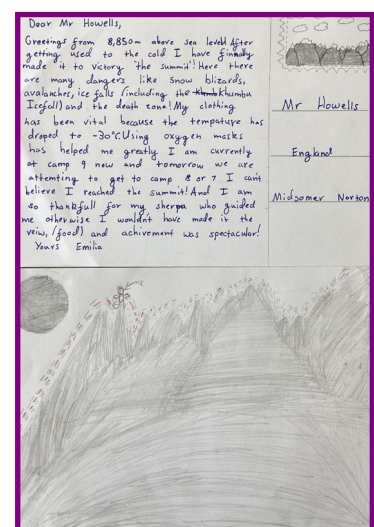 Dear Mr Howells,
Greetings from 8,850m above sea level! After
getting used to the cold I have finnaly
made it to victory 'the summit'! Here there
are many dangers like snow blizards,
avalanches, ice falls (including the Khumbu
Icefall) and the death zone! My clothing
has been vital because the tempature has
droped to -30°C. Using oxygen masks
has helped me greatly I am currently
at camp 9 now and tomorrow we are
attemting to get to camp 8 or 7 I can't
believe I reached the summit! And I am
so thankfull for my sherpa who guided
me otherwise I wouldn't have made it the
veiw, (food) and achivement was spectacular!
Yours Emilia
Mr Howells
England
Midsomer Norton